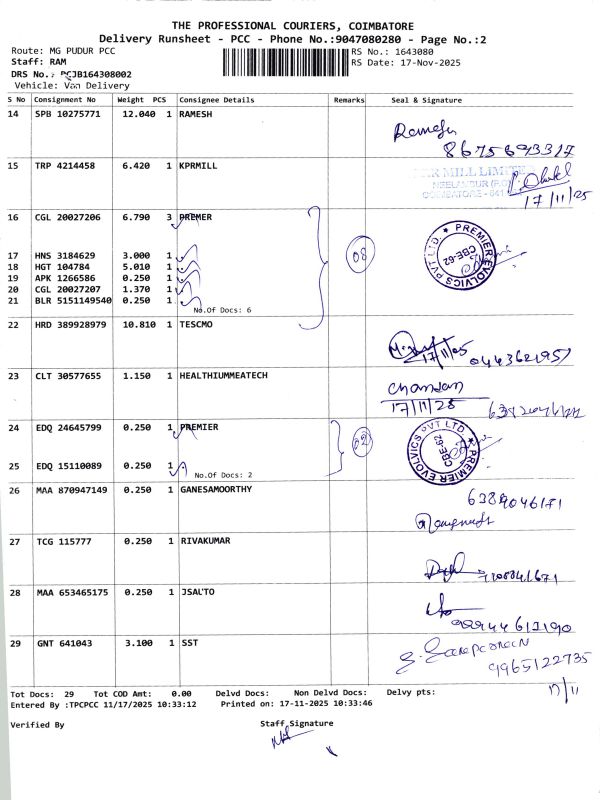 THE PROFESSIONAL COURIERS, COIMBATORE
Delivery Runsheet - PCC - Phone No.:9047080280 - Page No.:2
Route: MG PUDUR PCC RS No.: 1643080
Staff: RAM RS Date: 17-Nov-2025
DRS No.: PCJB164308002
Vehicle: Van Delivery
S No Consignment No Weight PCS Consignee Details Remarks Seal & Signature
14 SPB 10275771 12.040 1 RAMESH
Ramesh
15 TRP 4214458 6.420 1 KPRMILL
KPR MILL LIMITED
17/11/25
16 CGL 20027206 6.790 3 PREMIER
08
PREMIER EVOLVICS PVT LTD. CBE-62
17 HNS 3184629 3.000 1
18 HGT 104784 5.010 1
19 APK 1266586 0.250 1
20 CGL 20027207 1.370 1
21 BLR 5151149540 0.250 1
No.Of Docs: 6
22 HRD 389928979 10.810 1 TESCMO
17/11/25 0443621957
23 CLT 30577655 1.150 1 HEALTHIUMMEATECH
Chandan
17/11/25
24 EDQ 24645799 0.250 1 PREMIER
02
PREMIER EVOLVICS PVT LTD. CBE-62
25 EDQ 15110089 0.250 1
No.Of Docs: 2
26 MAA 870947149 0.250 1 GANESAMOORTHY
6389046171
27 TCG 115777 0.250 1 RIVAKUMAR
28 MAA 653465175 0.250 1 JSAUTO
29 GNT 641043 3.100 1 SST
9965122735
17/11
Tot Docs: 29 Tot COD Amt: 0.00 Delvd Docs: Non Delvd Docs: Delvy pts:
Entered By :TPCPCC 11/17/2025 10:33:12 Printed on: 17-11-2025 10:33:46
Verified By Staff Signature